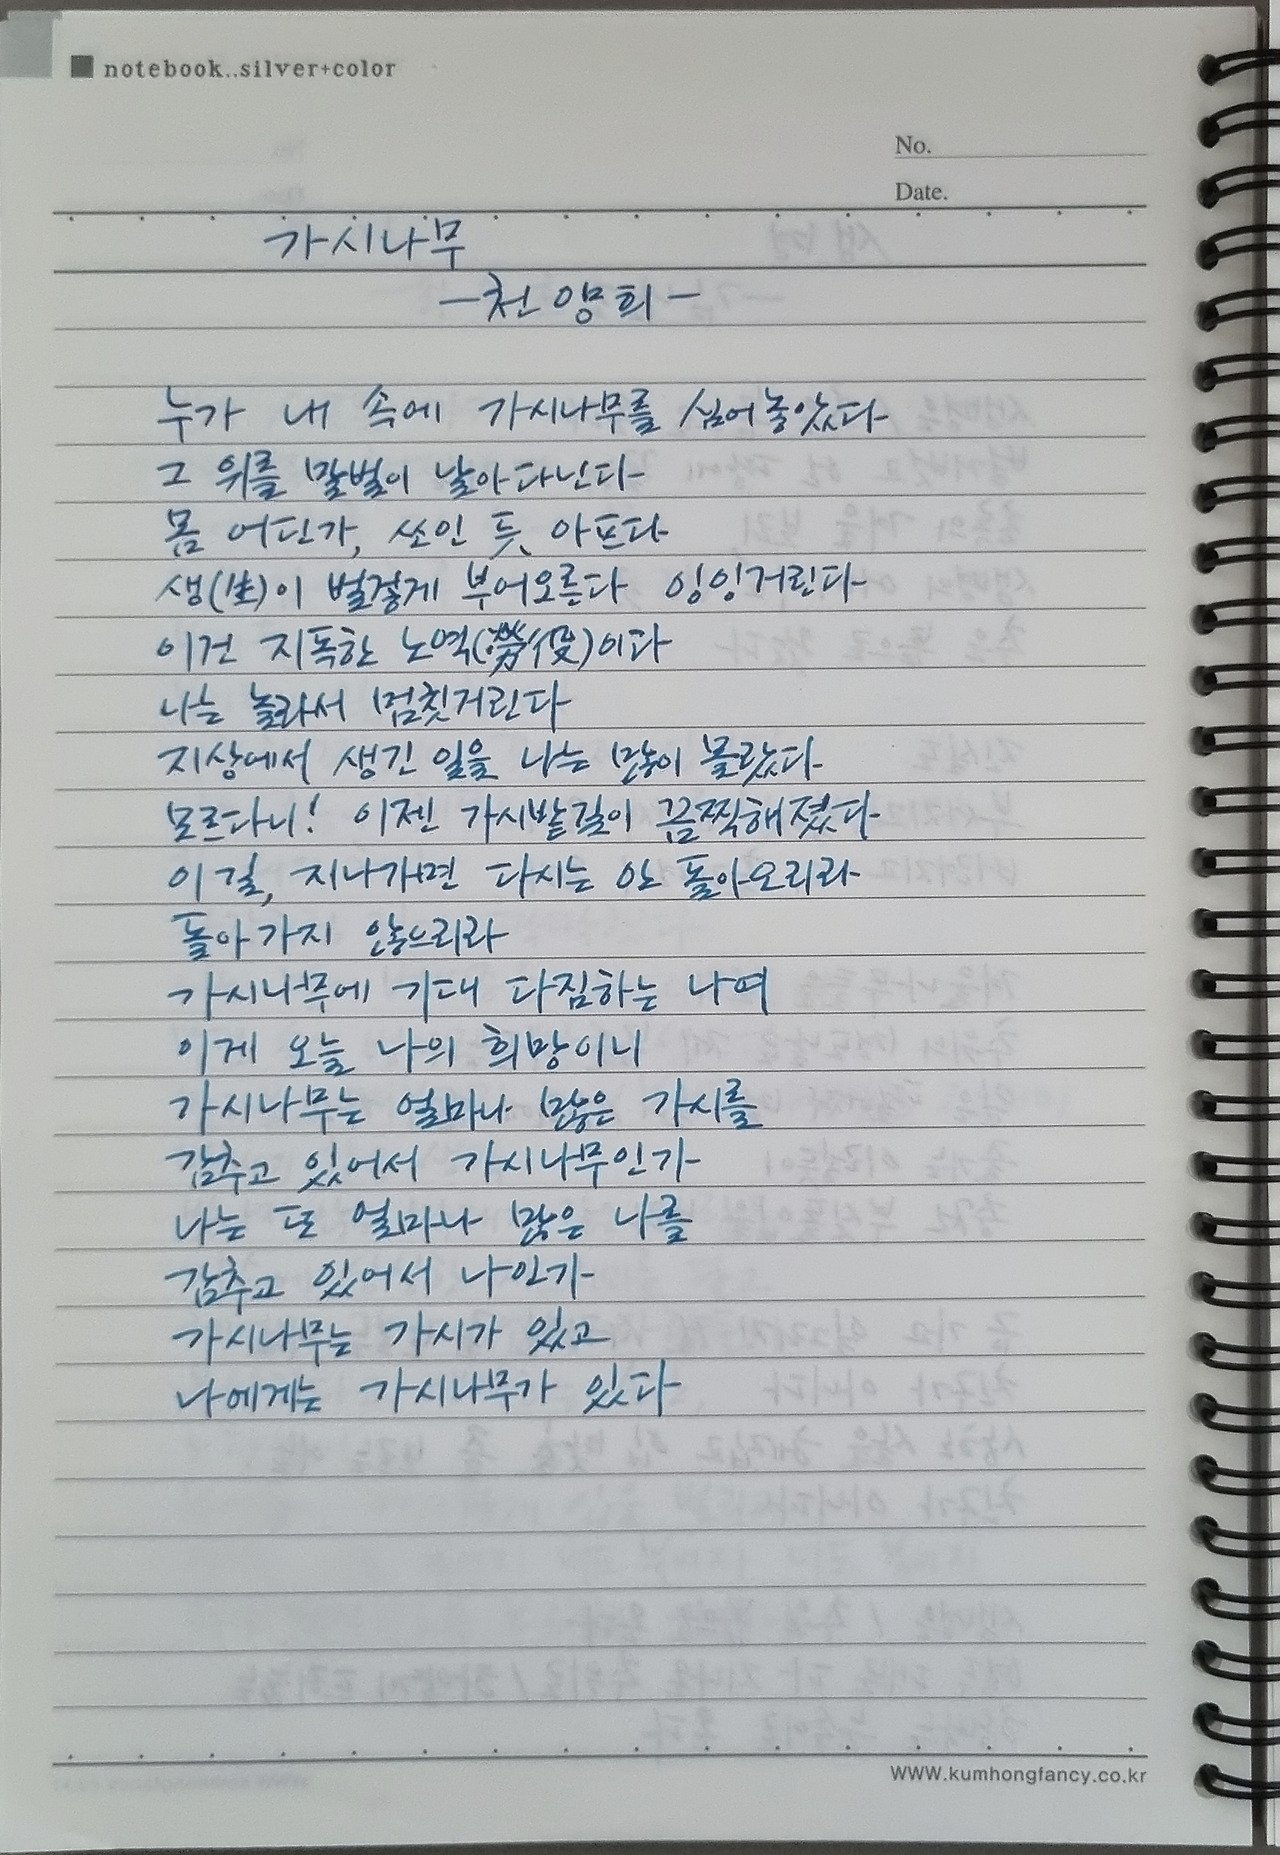 notebook..silver+color
No.
Date.
가시나무
-천양희-
누가 내 속에 가시나무를 심어놓았다
그 위를 말벌이 날아다닌다
몸 어딘가, 쏘인 듯 아프다
생(生)이 벌겋게 부어오른다 잉잉거린다
이건 지독한 노역(勞役)이다
나는 놀라서 멈칫거린다
지상에서 생긴 일을 나는 많이 몰랐다
모르다니! 이젠 가시밭길이 끔찍해졌다
이 길, 지나가면 다시는 안 돌아오리라
돌아가지 않으리라
가시나무에 기대 다짐하는 나여
이게 오늘 나의 희망이니
가시나무는 얼마나 많은 가시를
감추고 있어서 가시나무인가
나는 또 얼마나 많은 나를
감추고 있어서 나인가
가시나무는 가시가 있고
나에게는 가시나무가 있다
www.kumhongfancy.co.kr